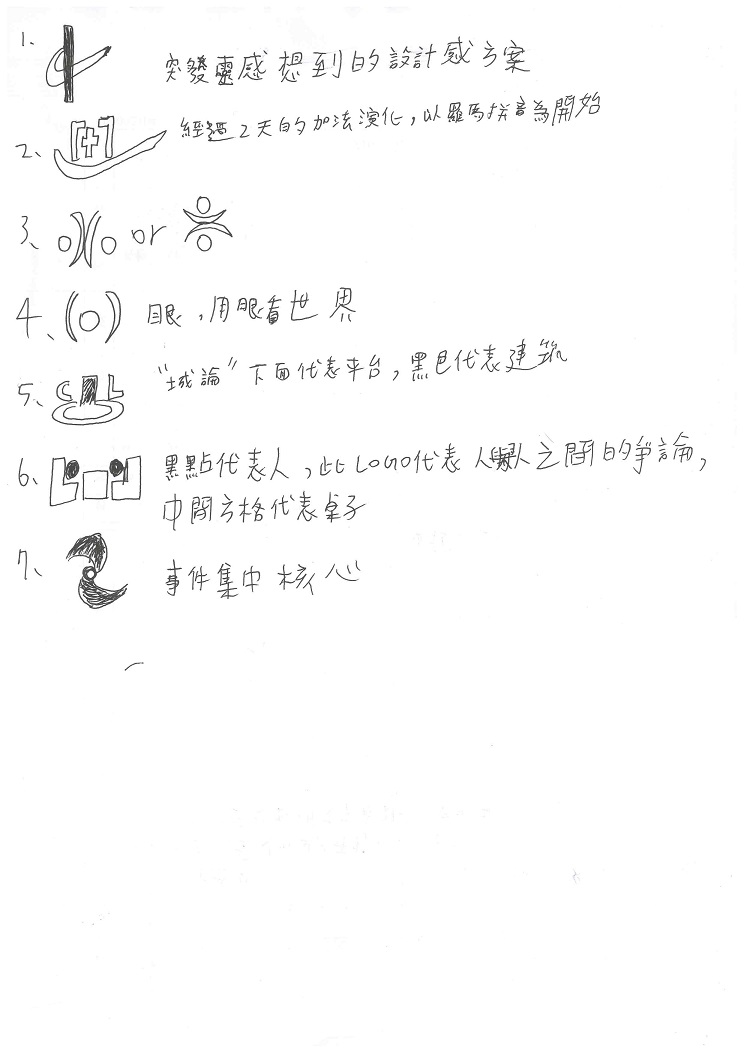 1、 突發靈感想到的設計感方案
2、 經過2天的加法演化，以羅馬拼音為開始
3、 or
4、 眼，用眼看世界
5、 C L “城論”下面代表平台，黑色代表建筑
6、 黑點代表人，此LOGO代表人與人之間的爭論，
中間方格代表桌子
7、 事件集中核心